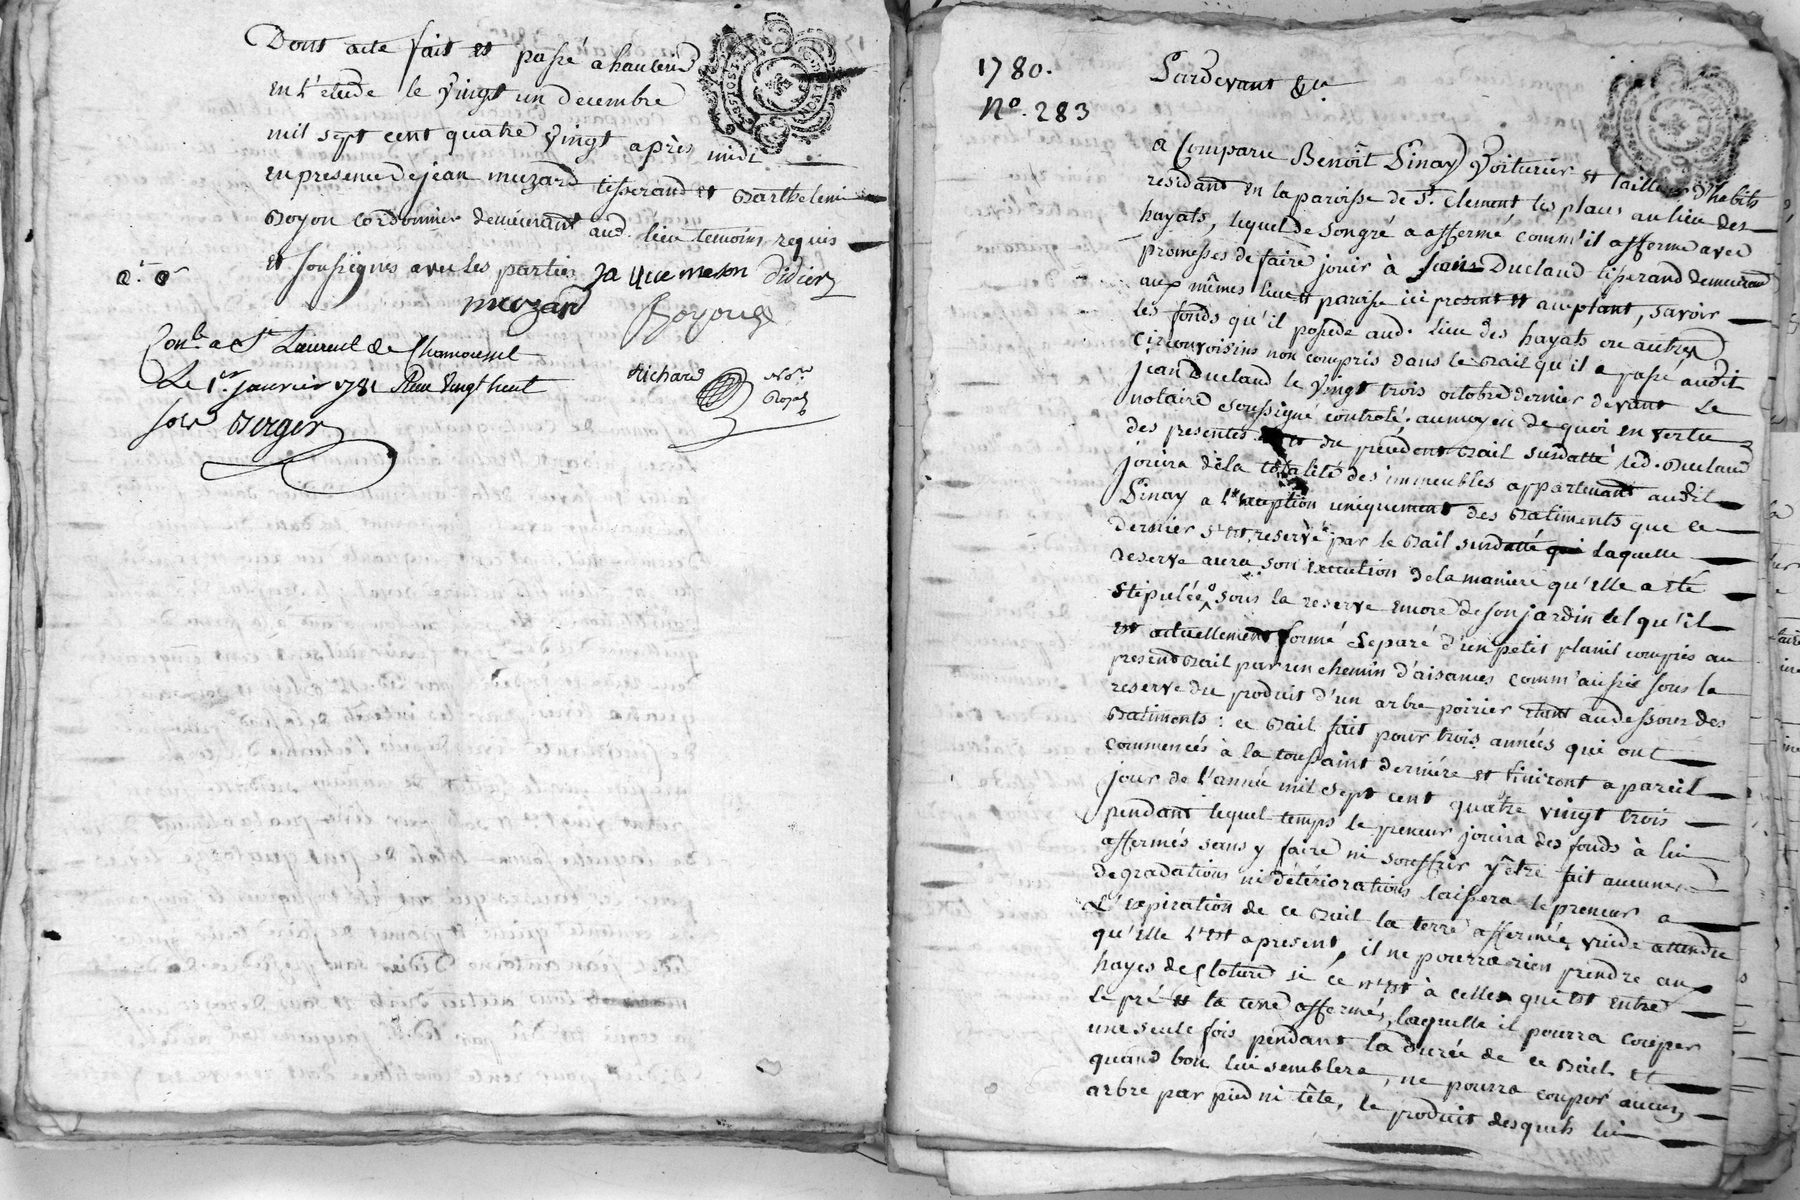 Dont acte fait et passé a hauteriv
en l'etude le vingt un decembre
mil sept cent quatre vingt après midi
en presence de jean muzard tisserand et Barthelemi
Boyon cordonnier demeurant aud. lieu temoins requis
et soussignés avec les parties jaquemeson Didier
muzard
Conlé a St Laurent de Chamousset
Le 1er janvier 1781 Reçu vingt huit
sols Berger
Richard Nore
Royal
1780.
No. 283
Pardevant &a
a Comparu Benoît Pinay Voiturier et tailleur d'habits
residant en la paroisse de St. Clement les places au lieu des
hayats, lequel de son gré a affermé comm'il afferme avec
promesses de faire jouir à Duclaud tisserand demeurant
aux mêmes lieu et paroisse ici present et acceptant, savoir
les fonds qu'il possede aud. lieu des hayats ou autres
circonvoisins non compris dans le Bail qu'il a passé audit
jean Duclaud le vingt trois octobre dernier devant le
notaire soussigné, controlé: au moyen de quoi en vertu
des presentes et du precedent Bail susdatté led. Duclaud
jouira de la totalité des immeubles appartenant audit
Pinay a l'exception uniquement des Batiments que ce
dernier s'est reservé par le Bail susdatté laquelle
reserve aura son execution de la maniere qu'elle a été
stipulée sous la reserve encore de son jardin tel qu'il
est actuellement formé separé d'un petit planil compris au
present Bail par un chemin d'aisances comm'aussi sous la
reserve du produit d'un arbre poirier étant au dessous des
Batiments: ce Bail fait pour trois années qui ont
commencés à la toussaint derniére et finiront a pareil
jour de l'année mil sept cent quatre vingt trois
pendant lequel temps le preneur jouira des fonds à lui
affermés sans y faire ni souffrir y être fait aucunes
degradations ni détériorations laissera le preneur a
L'expiration de ce Bail la terre affermée vuide attendu
qu'elle l'est apresent, il ne pourra rien prendre aux
hayes de Cloture si ce n'est à celle qui est entre
le pré et la terre affermés, laquelle il pourra couper
une seule fois pendant la durée de ce Bail et
quand bon lui semblera, ne pourra couper aucun
arbre par pied ni tête, le produit desquels lui